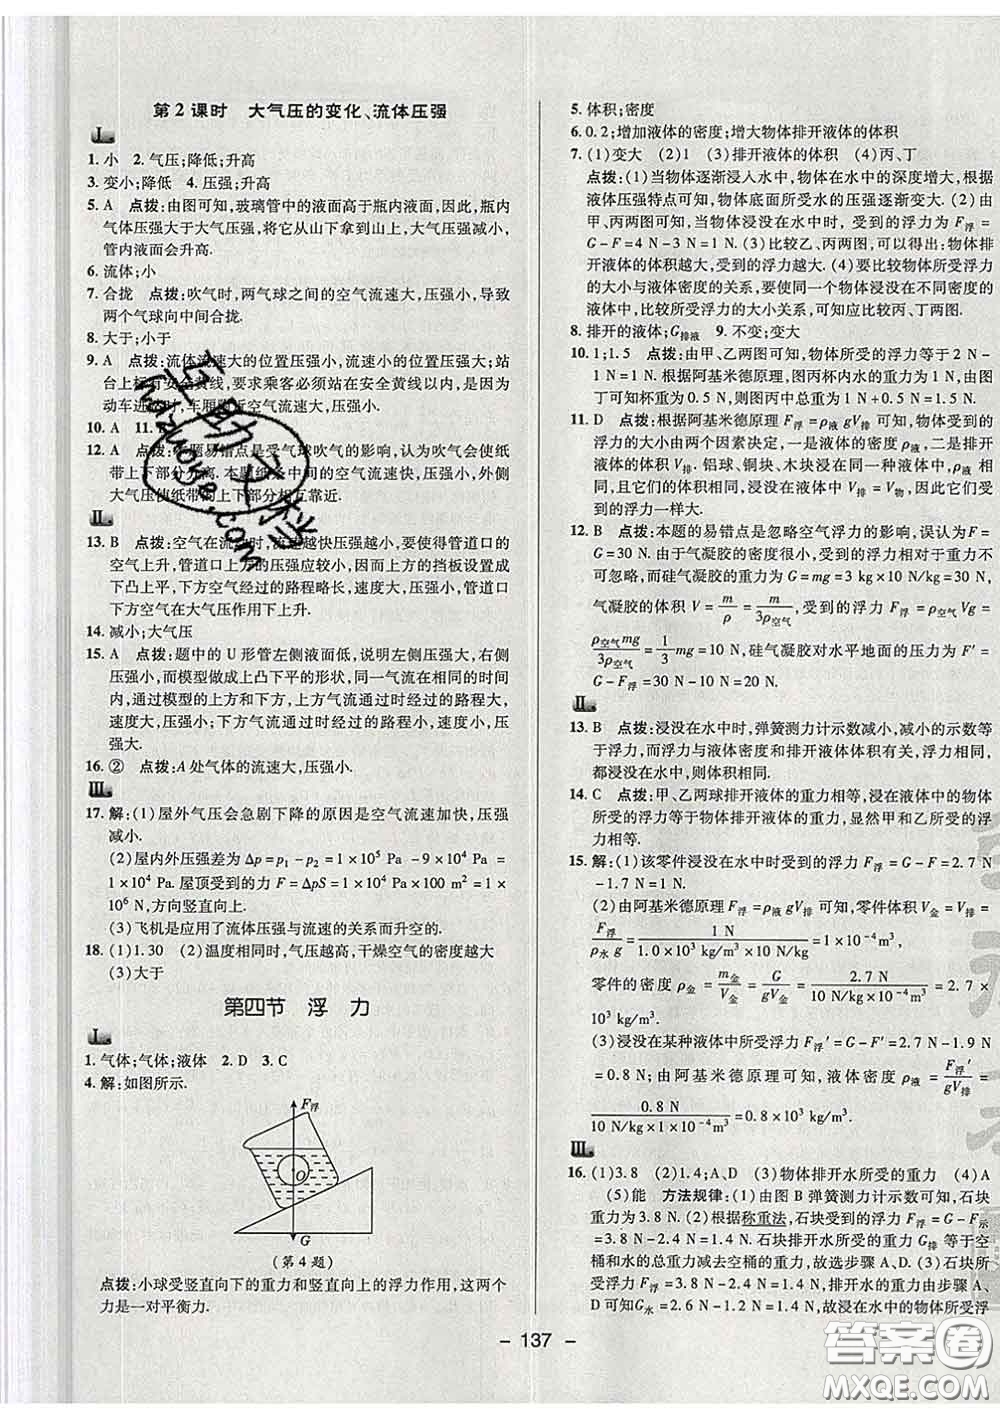 第2课时 大气压的变化、流体压强
Ⅰ.
1. 小 2. 气压;降低;升高
3. 变小;降低 4. 压强;升高
5. A 点拨:由图可知,玻璃管中的液面高于瓶内液面,因此,瓶内
气体压强大于大气压强,将它从山下拿到山上,大气压强减小,
管内液面会升高.
6. 流体;小
7. 合拢 点拨:吹气时,两气球之间的空气流速大,压强小,导致
两个气球向中间合拢.
8. 大于;小于
9. A 点拨:流体流速大的位置压强小,流速小的位置压强大;站
台上标有安全黄线,要求乘客必须站在安全黄线以内,是因为
动车进站时,车厢附近空气流速大,压强小.
10. A 11.
12. A 点拨:本题易错点是受气球吹气的影响,认为吹气会使纸
带上下部分分离.本题纸条中间的空气流速快,压强小,外侧
大气压使纸带的上下部分相互靠近.
Ⅱ.
13. B 点拨:空气在流动时,流速越快压强越小,要使得管道口的
空气上升,管道口上方的压强应较小,因此上方的挡板设置成
下凸上平,上方空气经过的路程略长,速度大,压强小,管道口
下方空气在大气压作用下上升.
14. 减小;大气压
15. A 点拨:题中的 U 形管左侧液面低,说明左侧压强大,右侧
压强小,而模型做成上凸下平的形状,同一气流通过时经过模
型的上方和下方,上方气流通过时经过的路程大,
速度大,压强小,下方气流通过时经过的路程小,速度小,压
强大.
16. ② 点拨:A 处气体的流速大,压强小.
Ⅲ.
17. 解:(1)屋外气压会急剧下降的原因是空气流速加快,压强
减小.
(2)屋内外压强差为 Δp=p₁-p₂=1×10⁵ Pa-9×10⁴ Pa=
1×10⁴ Pa. 屋顶受到的力 F=ΔpS=1×10⁴ Pa×100 m²=1×
10⁶ N,方向竖直向上.
(3)飞机是应用了流体压强与流速的关系而升空的.
18. (1)1.30 (2)温度相同时,气压越高,干燥空气的密度越大
(3)大于
第四节 浮 力
Ⅰ.
1. 气体;气体;液体 2. D 3. C
4. 解:如图所示.
F浮
O
G
(第4题)
点拨:小球受竖直向下的重力和竖直向上的浮力作用,这两个
力是一对平衡力.
5. 体积;密度
6. 0.2;增加液体的密度;增大物体排开液体的体积
7. (1)变大 (2)1 (3)排开液体的体积 (4)丙、丁
点拨:(1)当物体逐渐浸入水中,物体在水中的深度增大,根
据液体压强特点可知,物体底面所受水的压强逐渐变大.(2)由
甲、丙两图可知,当物体浸没在水中时,受到的浮力为 F浮=
G-F=4 N-3 N=1 N.(3)比较乙、丙两图,可以得出:物体排
开液体的体积越大,受到的浮力越大.(4)要比较物体所受浮力
的大小与液体密度的关系,要使同一个物体浸没在不同密度的
液体中,比较所受浮力的大小关系,可知应比较丙、丁两图.
8. 排开的液体;G排液 9. 不变;变大
10. 1;1.5 点拨:由甲、乙两图可知,物体所受的浮力等于 2 N-
1 N=1 N. 根据阿基米德原理,图丙杯内水的重力为 1 N,由图
丁可知杯重为 0.5 N,则图丙中总重为 1 N+0.5 N=1.5 N.
11. D 点拨:根据阿基米德原理 F浮=ρ液gV排 可知,物体受到的
浮力的大小由两个因素决定,一是液体的密度 ρ液,二是排开
液体的体积 V排. 铝球、铜块、木块浸没在同一液体中,ρ液 相
同,且它们的体积相同,浸没在液体中 V排=V物,因此它们受
到的浮力一样大.
12. B 点拨:本题的易错点是忽略空气浮力的影响,误认为 F=
G=30 N. 由于气凝胶的密度很小,受到的空气浮力相对于重力不
可忽略,而硅气凝胶的重力为 G=mg=3 kg×10 N/kg=30 N,
气凝胶的体积 V=m/ρ=m/3ρ空气,受到的浮力 F浮=ρ空气Vg=
ρ空气mg/3ρ空气=1/3mg=10 N,硅气凝胶对水平地面的压力 F′=
G-F浮=30 N-10 N=20 N.
Ⅱ.
13. B 点拨:浸没在水中时,弹簧测力计示数减小,减小的示数等
于浮力,而浮力与液体密度和排开液体体积有关,浮力相同,
都浸没在水中,则体积相同.
14. C 点拨:甲、乙两球排开液体的重力相等,浸在液体中的物体
所受的浮力等于物体排开液体的重力,显然甲和乙所受的浮
力相等.
15. 解:(1)该零件浸没在水中时受到的浮力 F浮=G-F=2.7 N
-1.7 N=1 N.
(2)由阿基米德原理 F浮=ρ液gV排 可知,零件体积 V金=V排=
F浮/ρ水g=1 N/1.0×10³ kg/m³×10 N/kg=1×10⁻⁴ m³.
零件的密度 ρ金=m金/V金=G/gV金=2.7 N/10 N/kg×10⁻⁴ m³=2.7×
10³ kg/m³.
(3)浸没在某种液体中所受浮力 F浮′=G-F′=2.7 N-1.9 N
=0.8 N;由阿基米德原理可知,液体密度 ρ液=F浮′/gV排=
0.8 N/10 N/kg×1×10⁻⁴ m³=0.8×10³ kg/m³.
Ⅲ.
16. (1)3.8 (2)1.4;A、D (3)物体排开水所受的重力 (4)A
(5)能 方法规律:(1)由图 B 弹簧测力计示数可知,石块
重力为 3.8 N.(2)根据称重法,石块受到的浮力 F浮=G-F示
=3.8 N-2.4 N=1.4 N. 石块排开水所受的重力 G排 等于空
桶和水的总重力减去空桶的重力,故选步骤 A、D.(3)石块所
受浮力 F浮=3.8 N-2.4 N=1.4 N,排开水的重力由步骤 A、
D 可知 G水=2.6 N-1.2 N=1.4 N;故浸在水中的物体所受浮
- 137 -
互助文档
huzuoye.com
答案圈
MXQE.COM